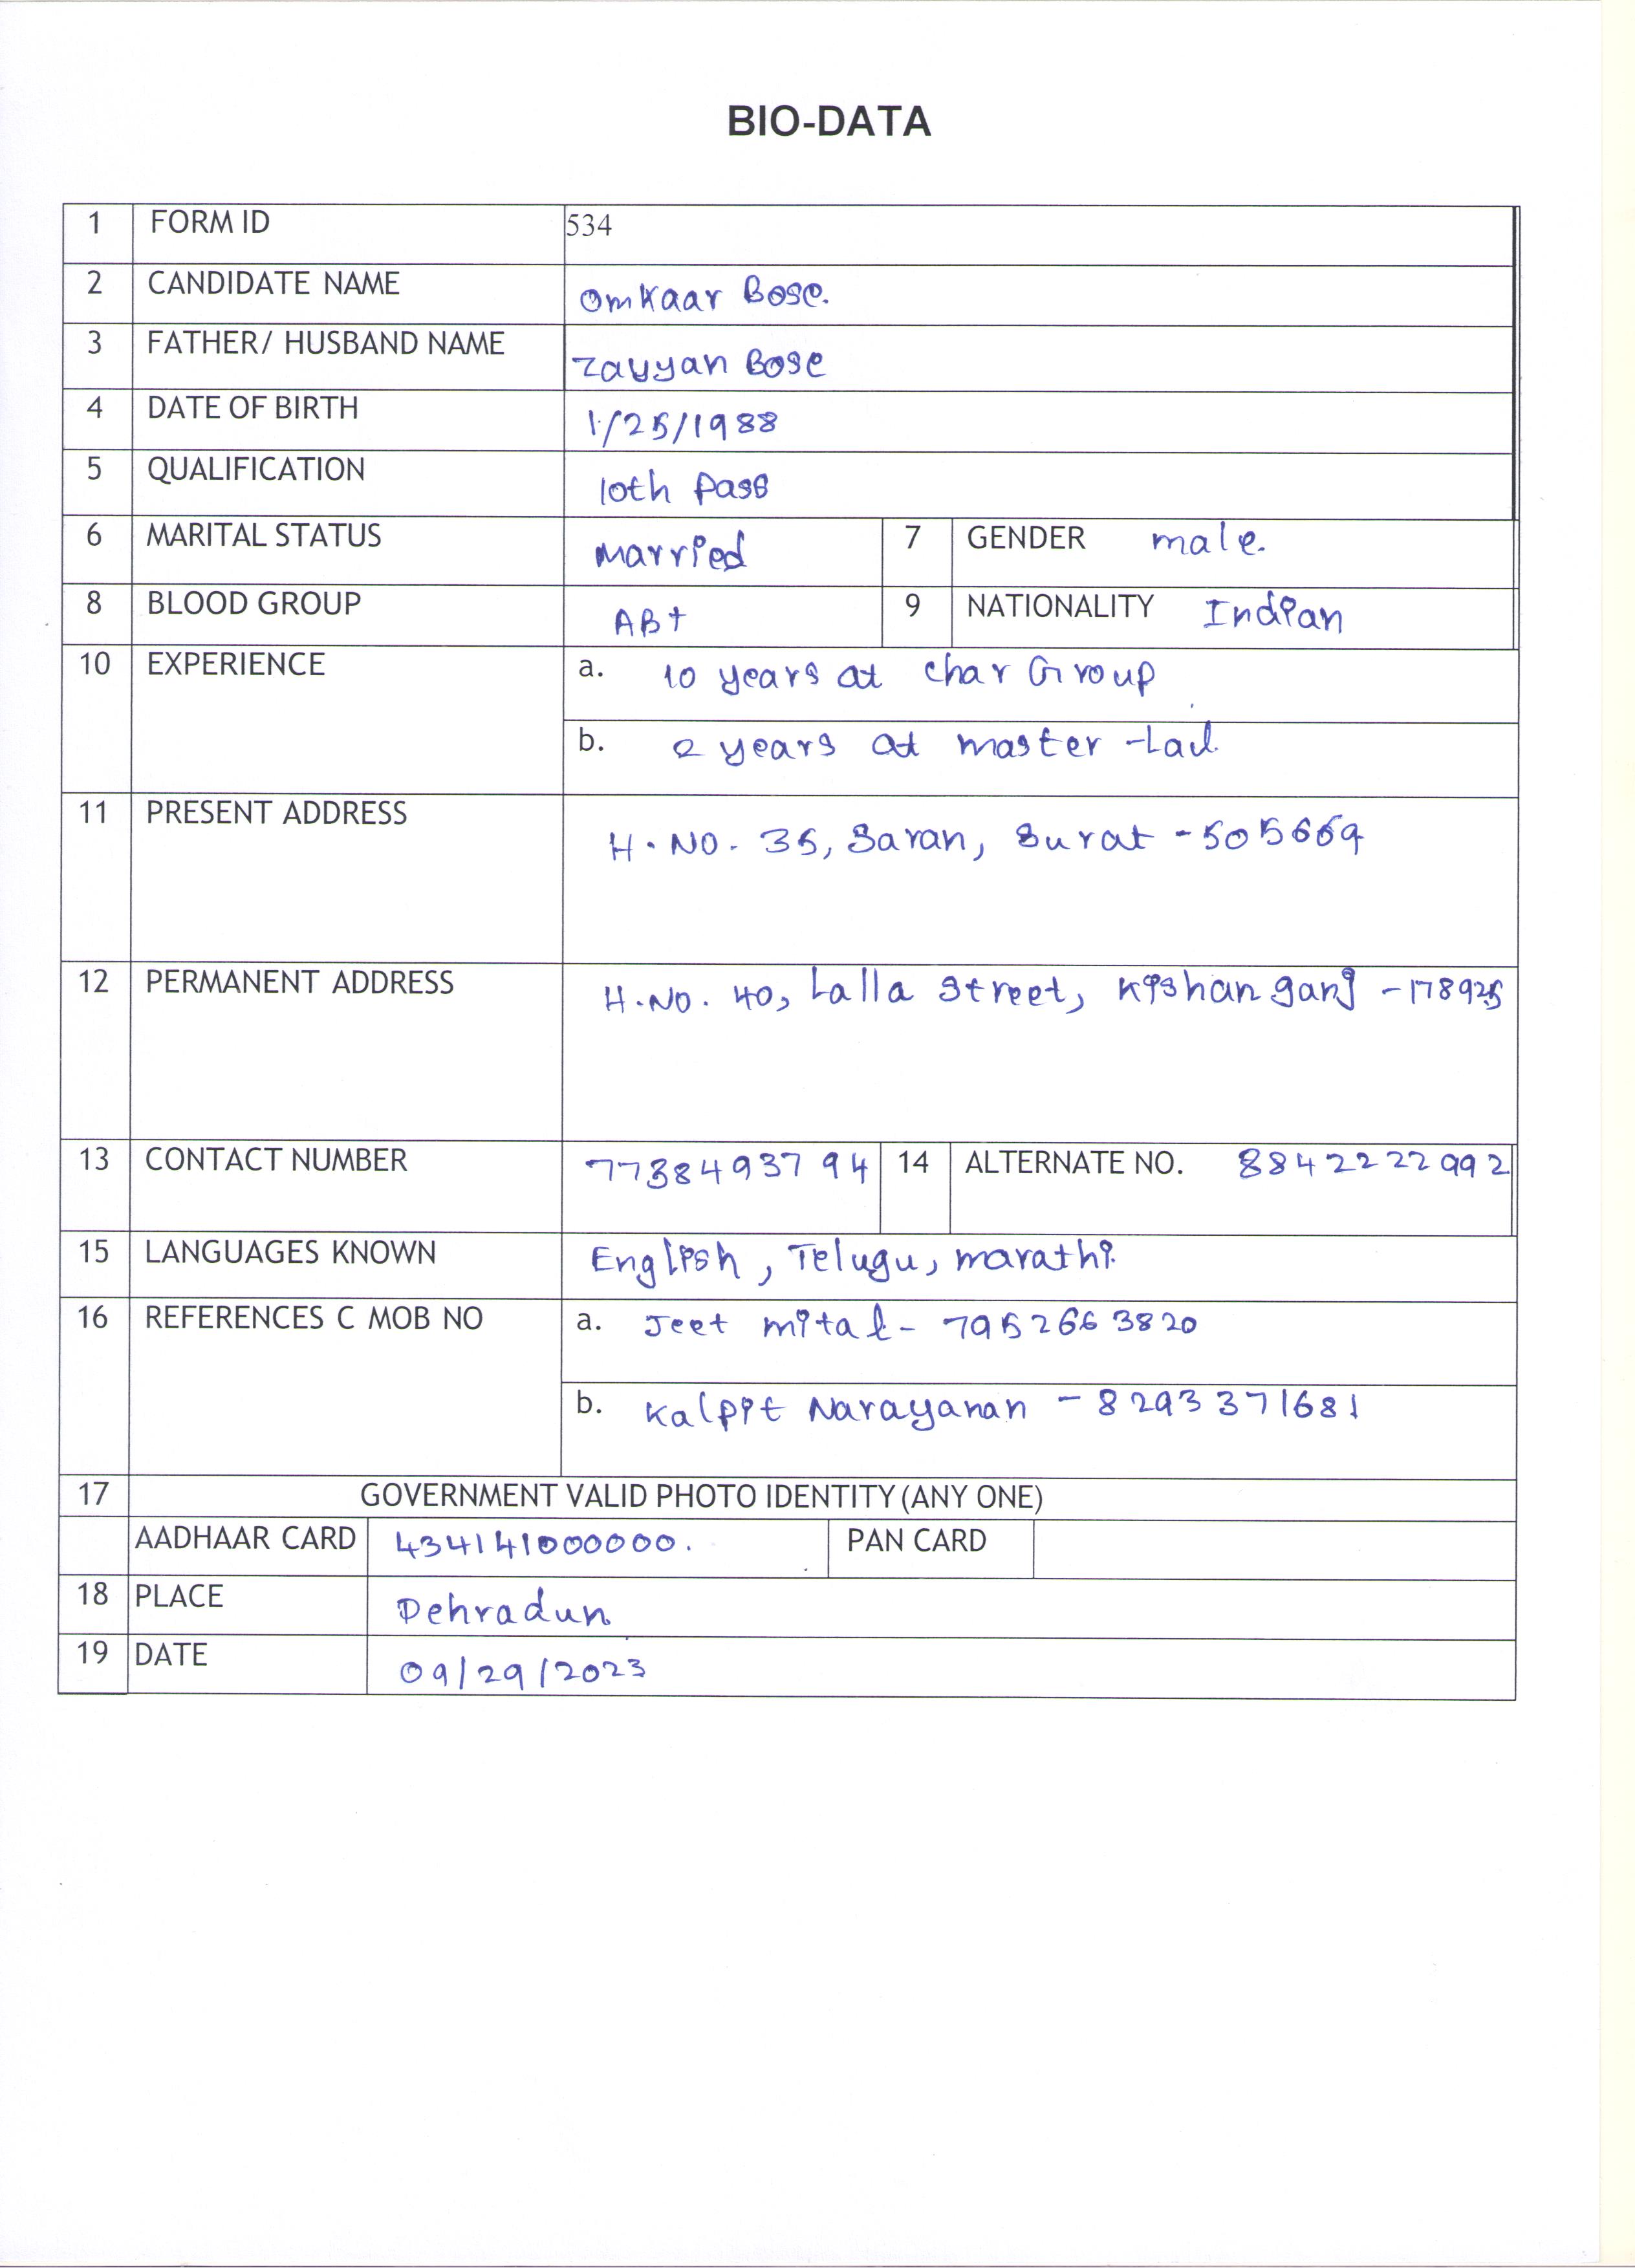 BIO-DATA
1 FORM ID 534
2 CANDIDATE NAME Omkaar Bose.
3 FATHER/ HUSBAND NAME Zayyan Bose
4 DATE OF BIRTH 1/25/1988
5 QUALIFICATION 10th Pass
6 MARITAL STATUS Married 7 GENDER male.
8 BLOOD GROUP AB+ 9 NATIONALITY Indian
10 EXPERIENCE a. 10 years at char Group
b. 2 years at master-Lad
11 PRESENT ADDRESS H.NO. 35, Saran, Surat - 505669
12 PERMANENT ADDRESS H.NO. 40, Lalla Street, Kishanganj - 178925
13 CONTACT NUMBER 7738493794 14 ALTERNATE NO. 8842222992
15 LANGUAGES KNOWN English, Telugu, marathi
16 REFERENCES C MOB NO a. Jeet mital - 7952663820
b. Kalpit Narayanan - 8293371681
17 GOVERNMENT VALID PHOTO IDENTITY (ANY ONE)
AADHAAR CARD 434141000000. PAN CARD
18 PLACE Dehradun
19 DATE 09/29/2023